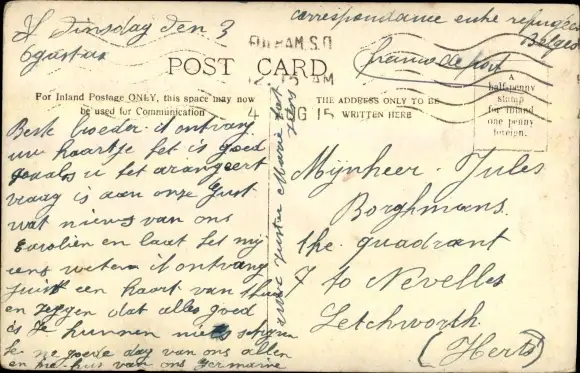 Dinsdag den 3
Ogustus
correspondance entre refugiés
Belges
franco de port
FULHAM.S.O
12.15 AM
4 AUG 15
POST CARD
A
half-penny
stamp
for inland
one penny
foreign.
For Inland Postage ONLY, this space may now
be used for Communication
THE ADDRESS ONLY TO BE
WRITTEN HERE
Beste broeder ik ontvang
uw kaartje het is goed
gelals u het arangeert
vraag is aan onze Gust
wat nieuws van ons
Carolien en laat het mij
eens weten ik ontvang
Juist een kaart van thuis
en zeggen dat alles goed
is Ze kunnen niets
ne goede dag van ons allen
en van ons Germaine
zuster Marie
Mijnheer Jules
Borghmans.
the quadrant
7 to Nevelles
Letchworth
(Herts)